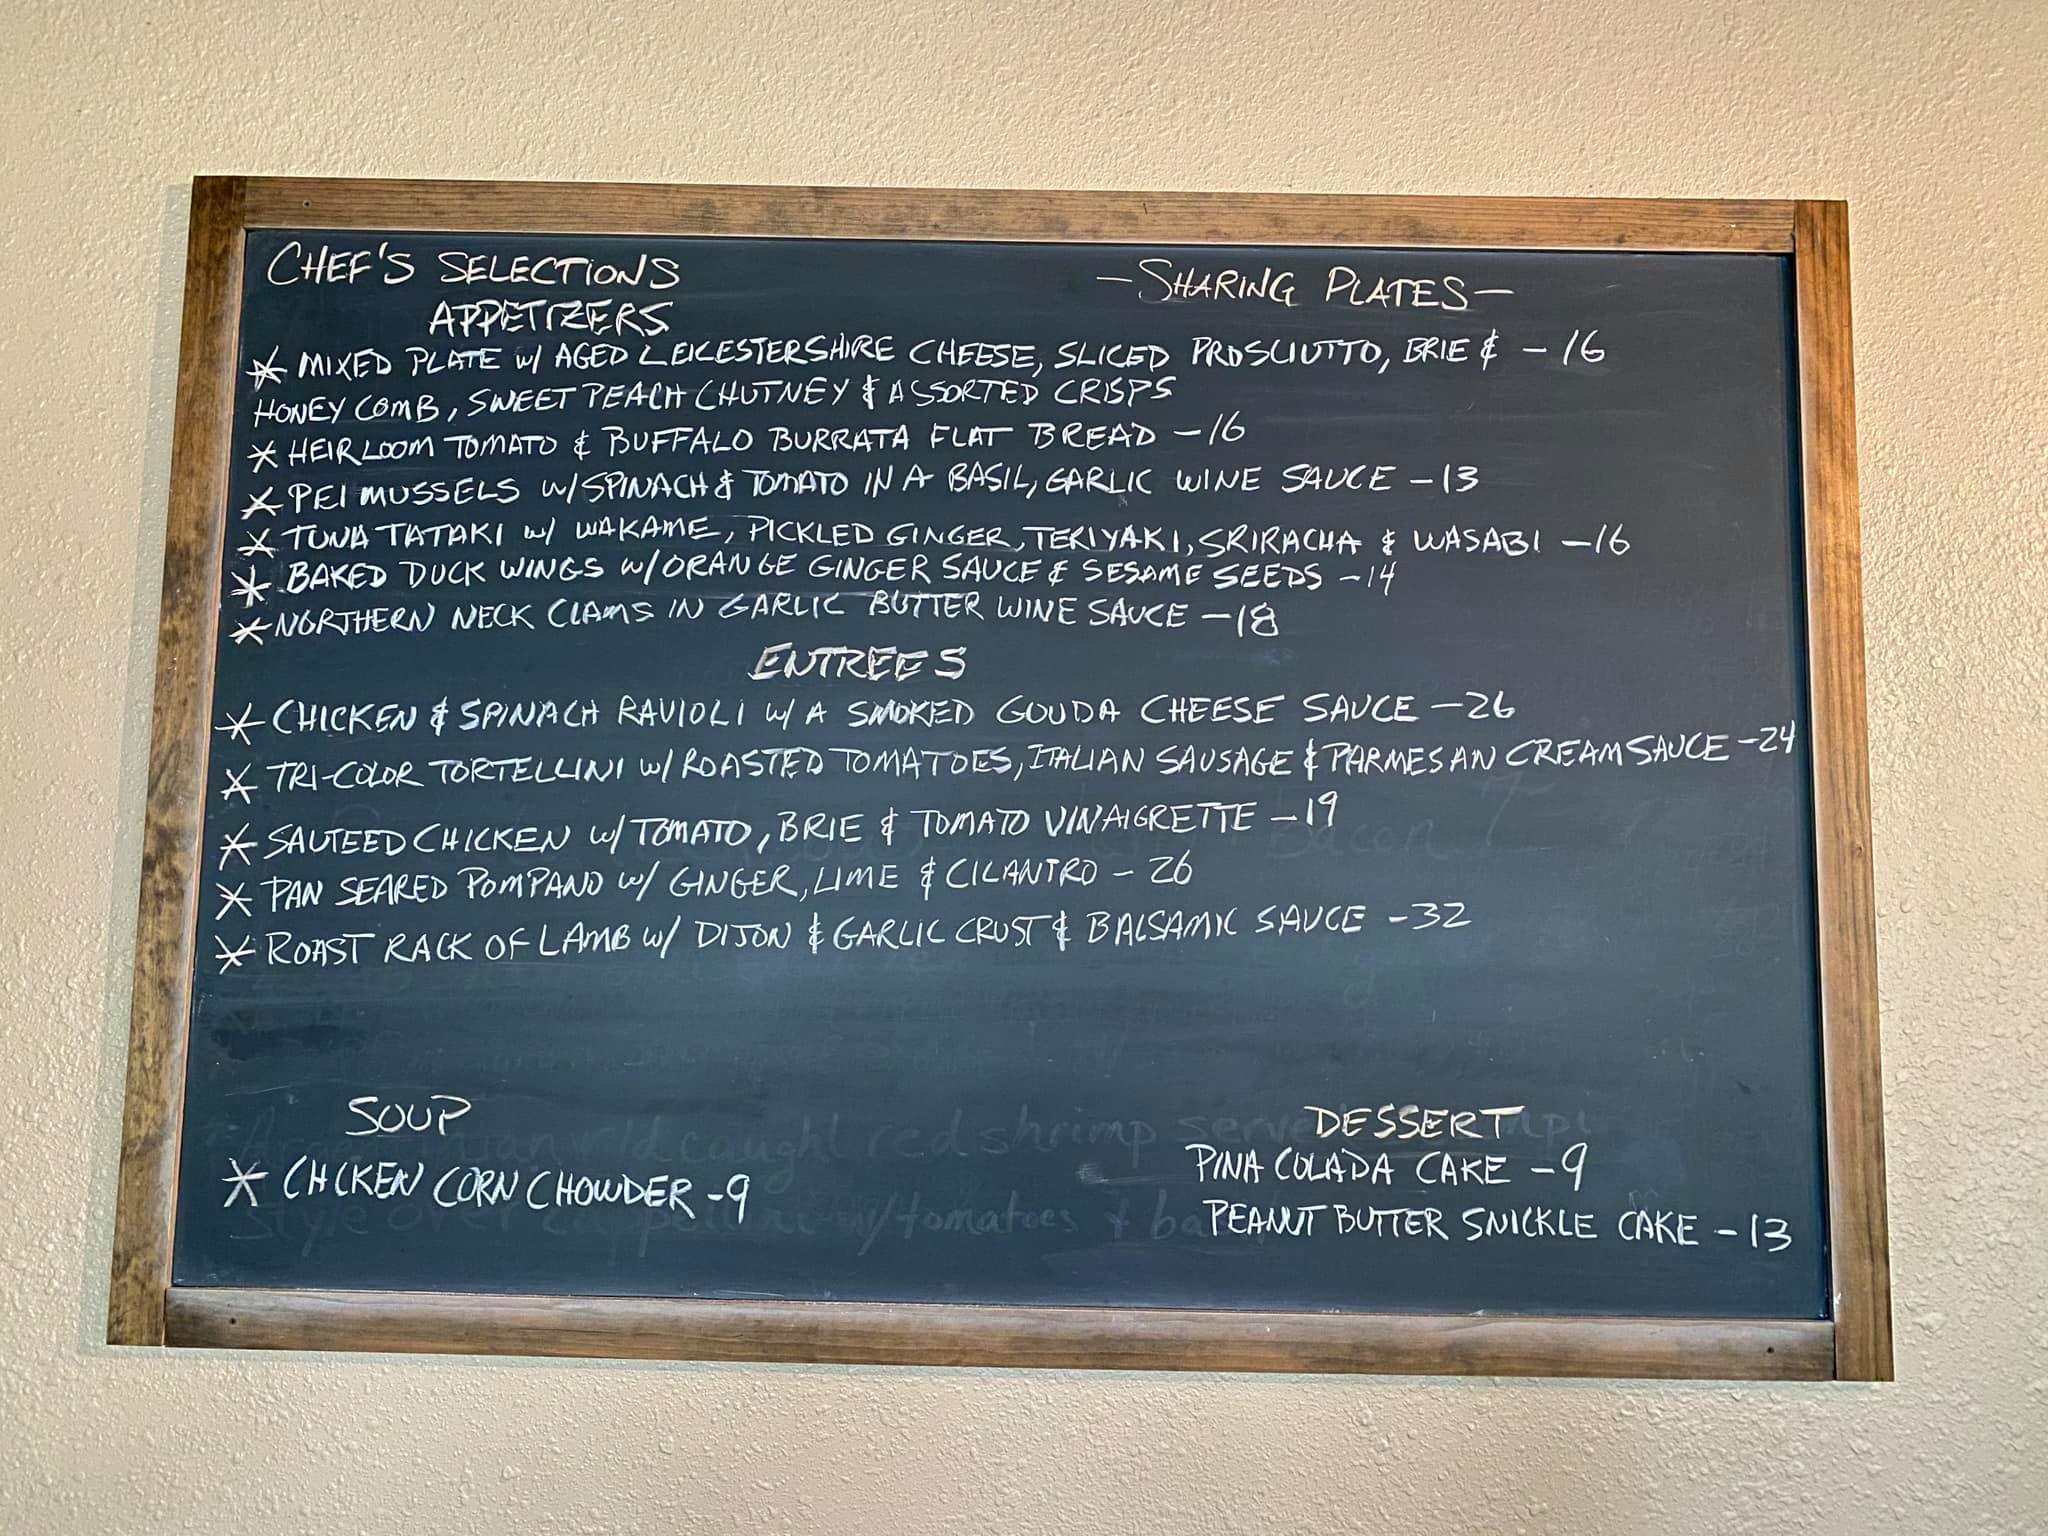 CHEF'S SELECTIONS
-SHARING PLATES-
APPETIZERS
* MIXED PLATE w/ AGED LEICESTERSHIRE CHEESE, SLICED PROSCIUTTO, BRIE & - 16
HONEY COMB, SWEET PEACH CHUTNEY & ASSORTED CRISPS
* HEIRLOOM TOMATO & BUFFALO BURRATA FLAT BREAD -16
* PEI MUSSELS w/SPINACH & TOMATO IN A BASIL, GARLIC WINE SAUCE -13
* TUNA TATAKI w/ WAKAME, PICKLED GINGER, TERIYAKI, SRIRACHA & WASABI -16
* BAKED DUCK WINGS w/ORANGE GINGER SAUCE & SESAME SEEDS -14
* NORTHERN NECK CLAMS IN GARLIC BUTTER WINE SAUCE -18
ENTREES
* CHICKEN & SPINACH RAVIOLI w/A SMOKED GOUDA CHEESE SAUCE -26
* TRI-COLOR TORTELLINI w/ROASTED TOMATOES, ITALIAN SAUSAGE & PARMESAN CREAM SAUCE -24
* SAUTEED CHICKEN w/TOMATO, BRIE & TOMATO VINAIGRETTE -19
* PAN SEARED POMPANO w/ GINGER, LIME & CILANTRO - 26
* ROAST RACK OF LAMB w/ DIJON & GARLIC CRUST & BALSAMIC SAUCE -32
SOUP
* CHICKEN CORN CHOWDER -9
DESSERT
PINA COLADA CAKE -9
PEANUT BUTTER SNICKLE CAKE -13
bacon
wild caught red shrimp
style over
w/tomatoes +